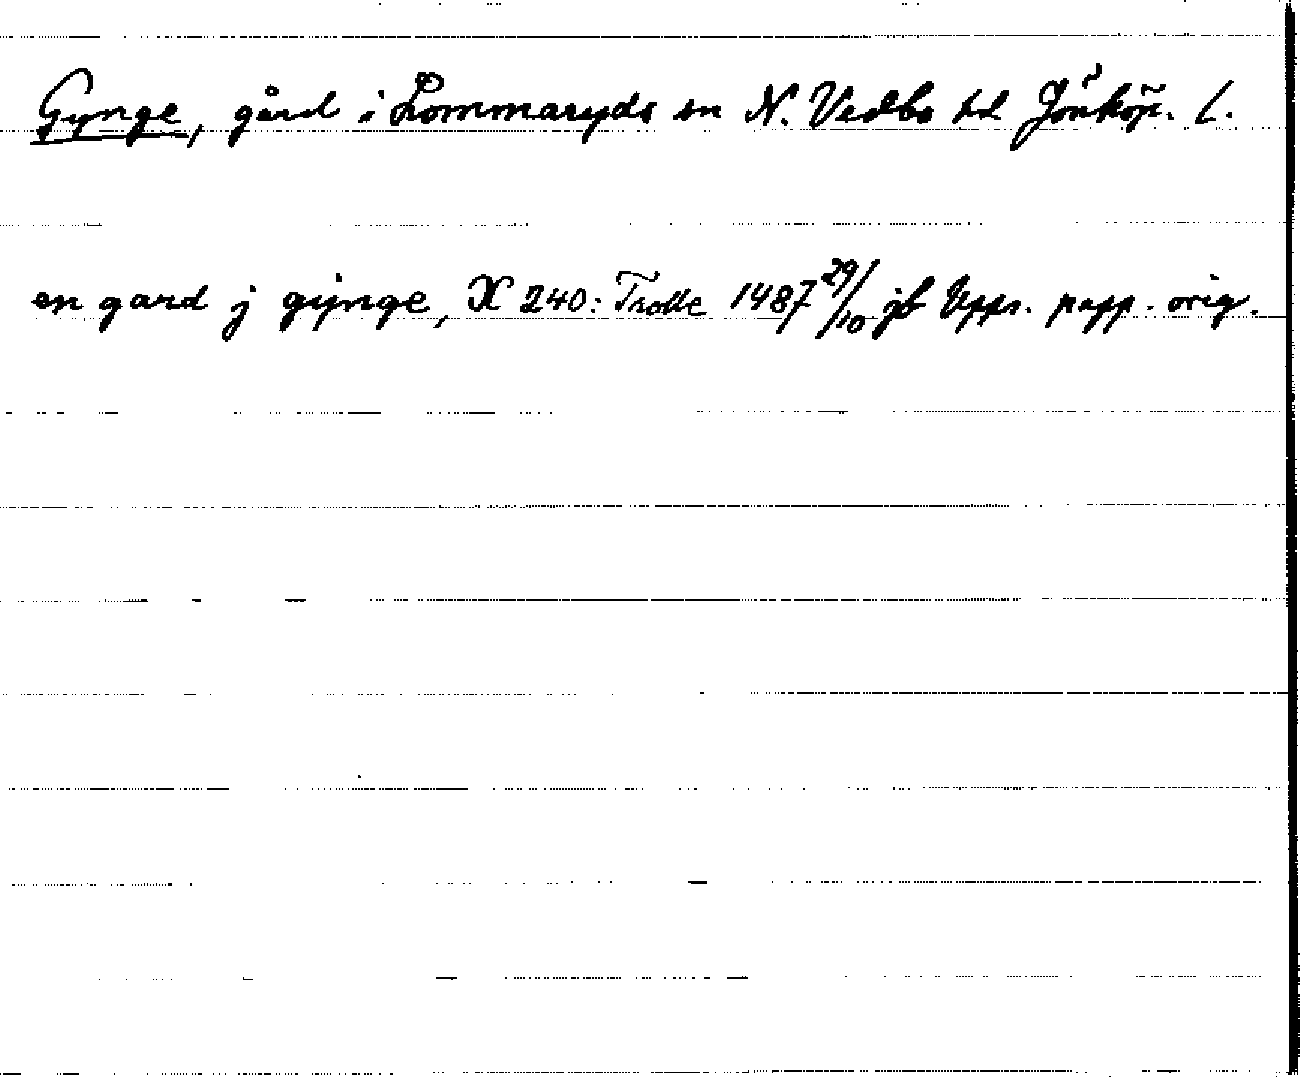 Gynge, gård i Lommaryds sn N. Vedbo hd Jönköp. l.
en gard j gijnge, X 240: Trolle 1487 29/10 jb Upps. papp. orig.